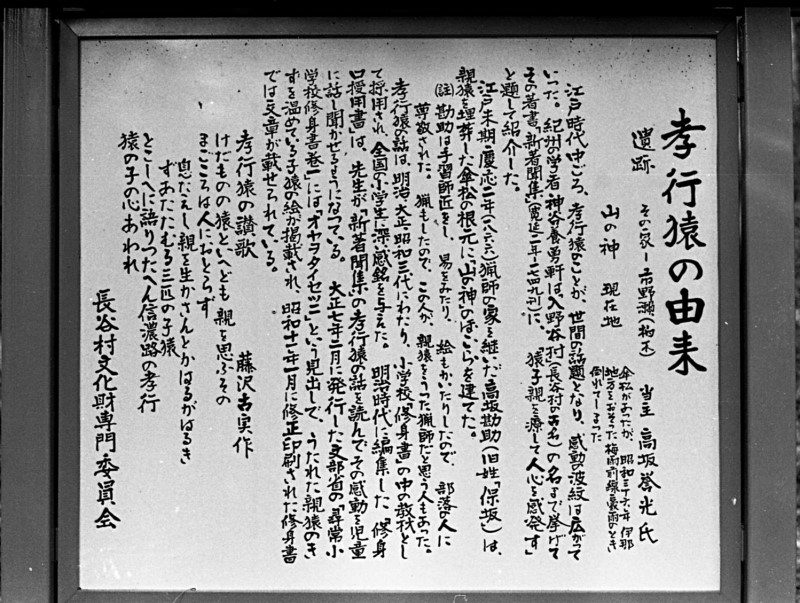 孝行猿の由来
遺跡　その家ー市野瀬（柏木）　当主　高坂誉光氏
山の神　現在地
傘松があったが、昭和三十六年伊那
地方をおそった梅雨前線豪雨のとき
倒れてしまった
江戸時代中ごろ、孝行猿のことが、世間の話題となり、感動の波紋は広がって
いった。紀州の学者神谷養勇軒は入野谷村（長谷村の古名）の名まで挙げて
その著書「新著聞集」（寛延二年一七四九刊）に、「猿子親を療して人心を感発す」
と題して紹介した。
江戸末期、慶応二年（一八六六）猟師の家を継いだ高坂勘助（旧姓「保坂」）は、
親猿を埋葬した傘松の根元に山の神のほこらを建てた。
（註）勘助は手習師匠をし、易をみたり、絵もかいたりしたので、部落の人に
尊敬された。猟もしたので、この人が、親猿をうった猟師だと思う人もあった。
孝行猿の話は、明治、大正、昭和三代にわたり、小学校「修身書」の中の教材とし
て採用され、全国の小学生に深い感銘を与えた。明治時代に編集した「修身
口授用書」は、先生が「新著聞集」の孝行猿の話を読んでその感動を児童
に話し聞かせるようになっている。大正七年二月に発行した文部省の「尋常小
学校修身書巻一」には「オヤヲタイセツニ」という見出しで、うたれた親猿のき
ずを温めている子猿の絵が掲載され、昭和十一年一月に修正印刷された修身書
では文章が載せられている。
孝行猿の讃歌　藤沢古実作
けだものの猿といへども親を思ふその
まごころは人におとらず
息たえし親を生かさんとかはるがはるき
ずあたたむる三匹の子猿
とこしへに語りつたへん信濃路の孝行
猿の子の心あわれ
長谷村文化財専門委員会